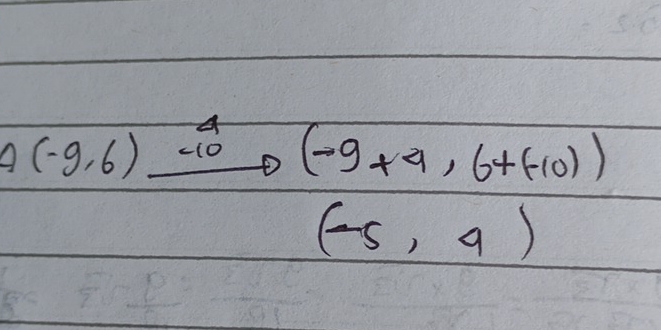 4
A (-9,6) -10 → (-9+4, 6+(-10))
(-5, 4)